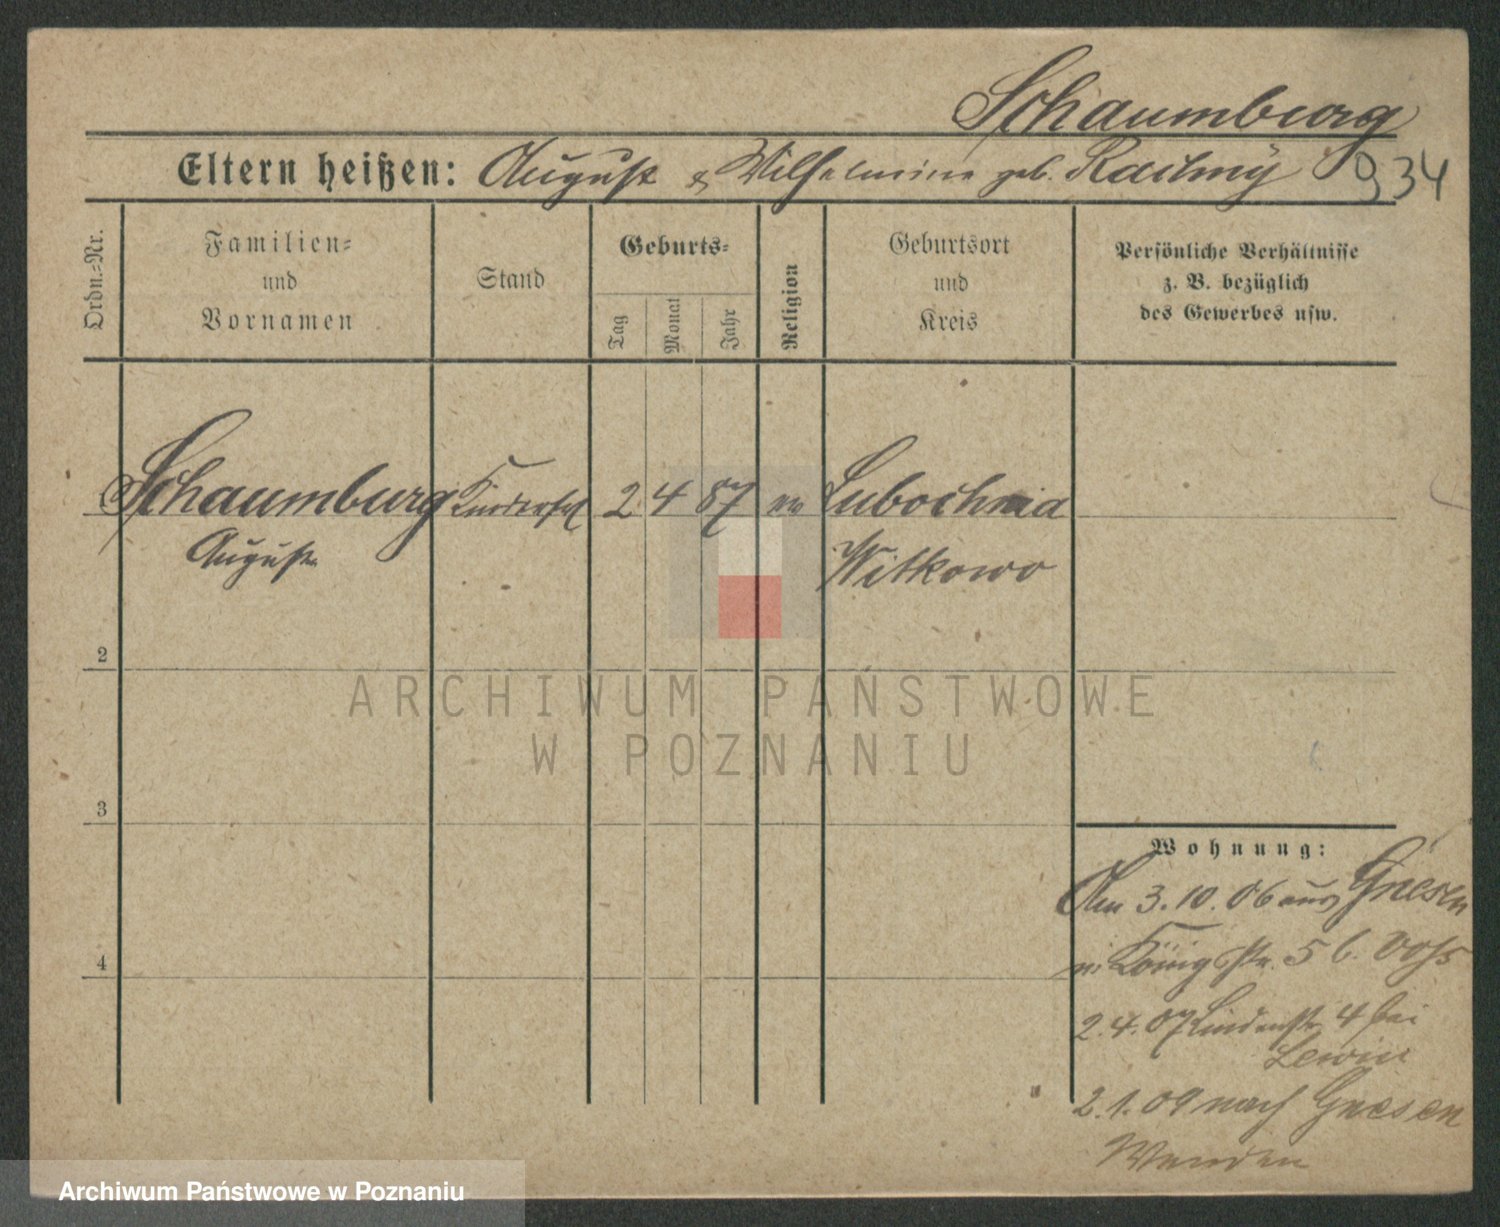 Schaumburg
Eltern heißen: August & Wilhelmine geb.
934
Ordn.-Nr.
Familien-
und
Vornamen
Stand
Geburts-
Tag
Monat
Jahr
Religion
Geburtsort
und
Kreis
Persönliche Verhältnisse
z. B. bezüglich
des Gewerbes usw.
Schaumburg 2 4 87 ev Lubochnia
August Witkowo
2
3
4
Wohnung:
Am 3.10.06 aus Gnesen
n. Königstr. 5 b. Voss
2.4.07 Lindenstr. 4 bei
Lewin
2.1.09 nach Gnesen
Wenden
ARCHIWUM PAŃSTWOWE
W POZNANIU
Archiwum Państwowe w Poznaniu